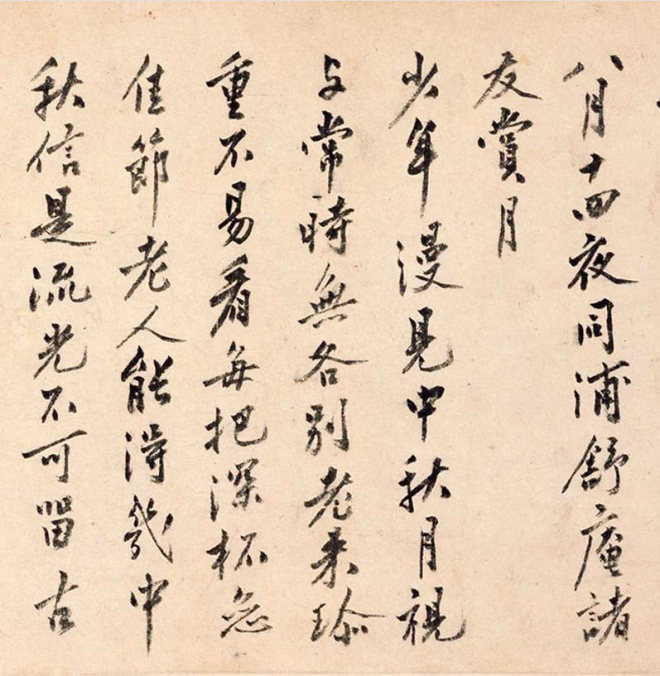 八月十四夜同浦舒庵諸
友賞月
少年漫見中秋月視
与常時無各別老来珎
重不易看每把深杯恋
佳節老人能得幾中
秋信是流光不可留古